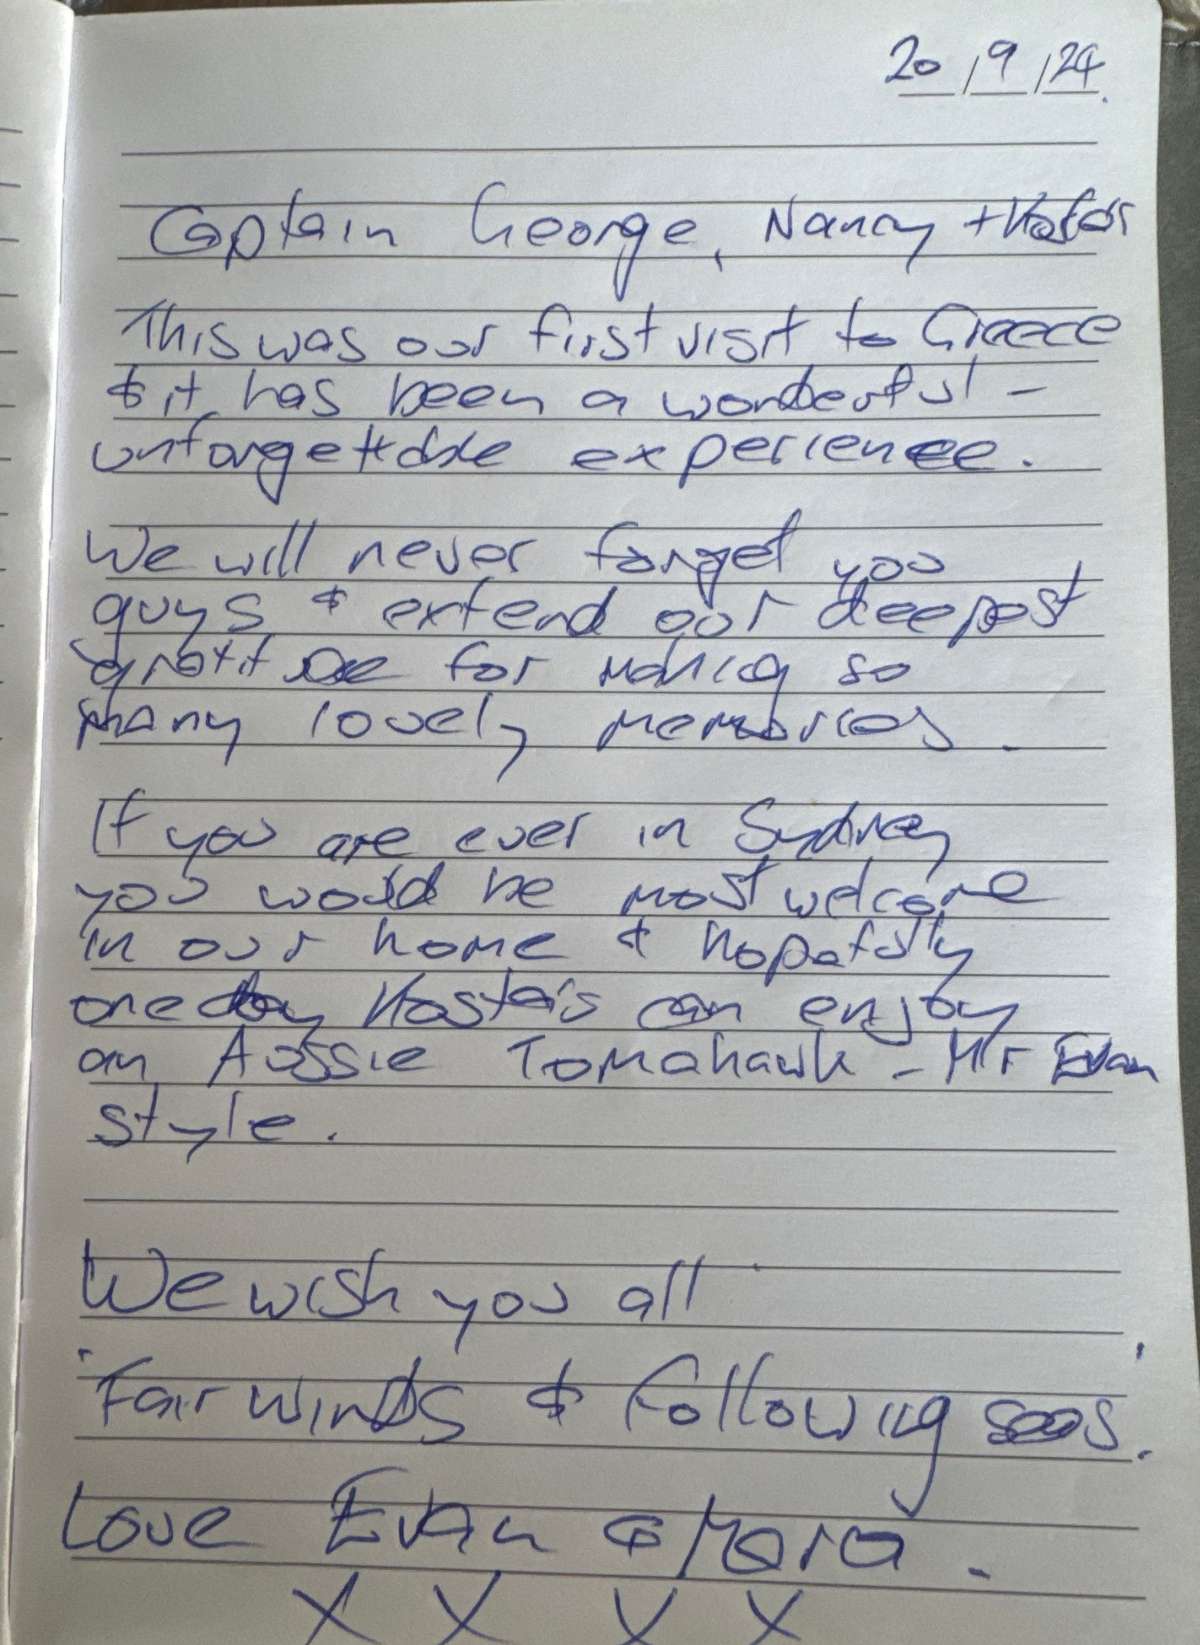 20/9/24.
Captain George, Nancy + Kostas
This was our first visit to Greece
& it has been a wonderful -
unforgettable experience.
We will never forget you
guys & extend our deepest
gratitude for making so
many lovely memories.
If you are ever in Sydney
you would be most welcome
in our home & hopefully
one day Kostas can enjoy
an Aussie Tomahawk - Mr Evan
style.
We wish you all
'Fair winds & following seas.'
Love Evan & Mara.
X X X X